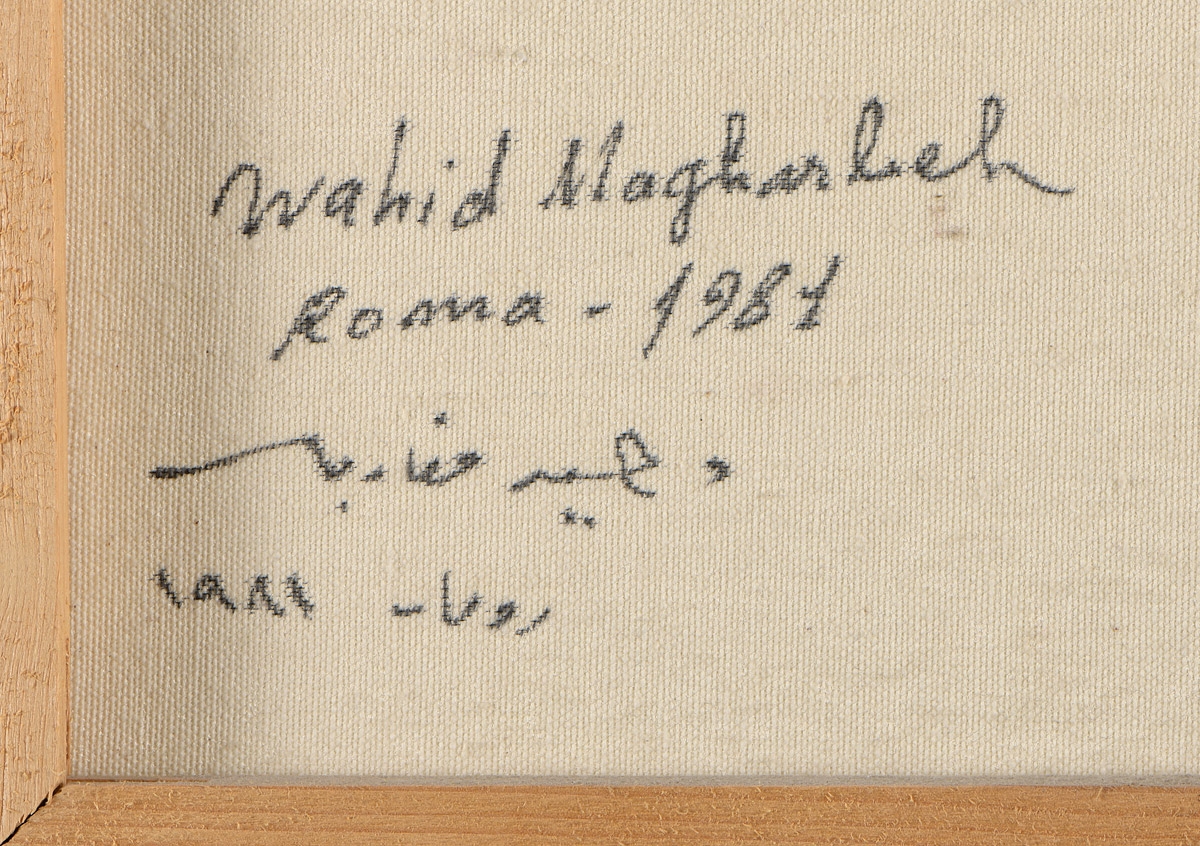 Wahid Magharbeh
Roma - 1981
وحيد مغاربه
روما - ١٩٨١